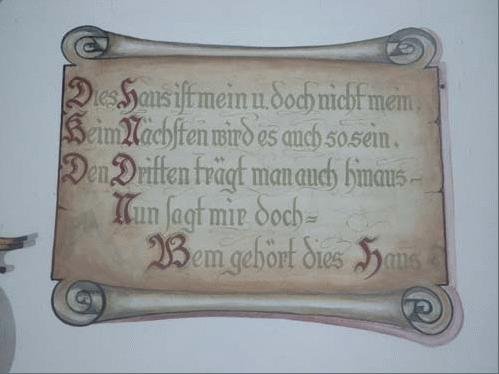 Dies Haus ist mein u. doch nicht mein.
Beim Nächsten wird es auch so sein.
Den Dritten trägt man auch hinaus-
Nun sagt mir doch=
Wem gehört dies Haus?